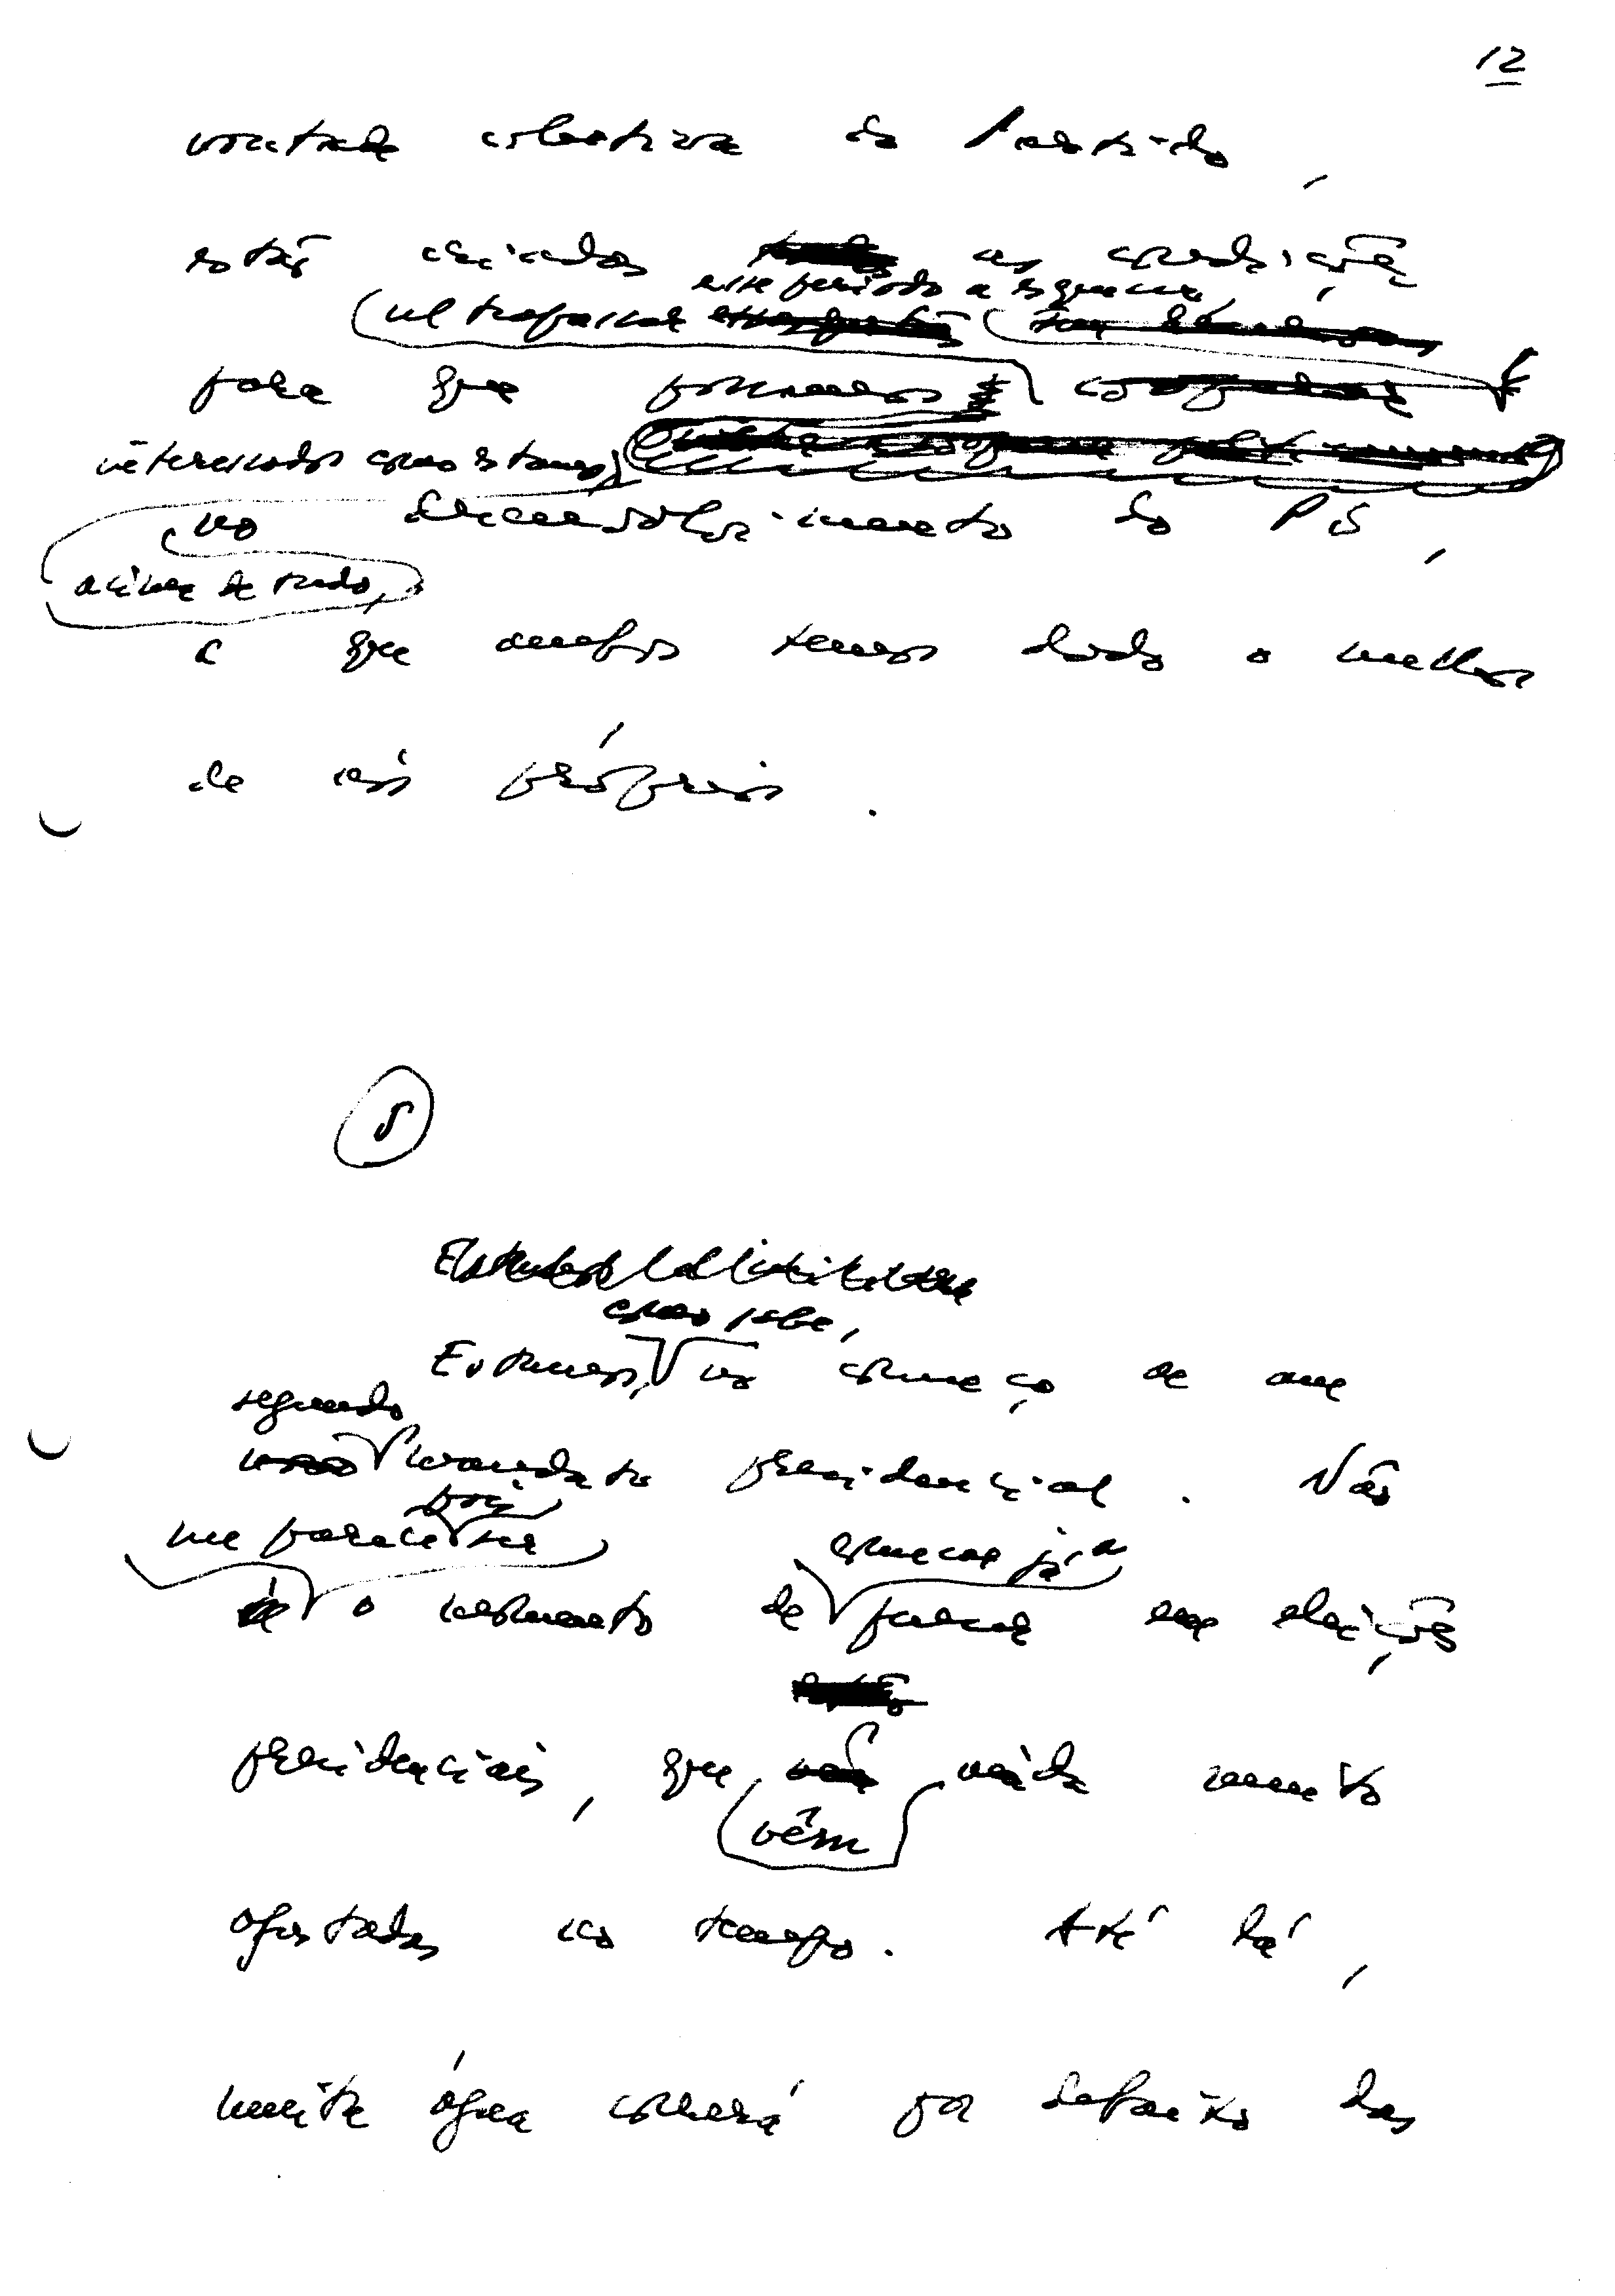 12
vontade colectiva do Partido,
estão criadas as condições
este período a esquecer,
ultrapassar
para que possamos
interessados como estamos,
no desenvolvimento do PS,
acima de tudo,
a que ambos temos dado o melhor
de nós próprios.
5
como sabe,
Estamos, no começo de um
segundo
mandato presidencial. Não
pois
me parece ser
começar já a
o momento de pensar em eleições
presidenciais, que ainda muito
vêm
afastadas no tempo. Até lá,
muita água correrá por debaixo das